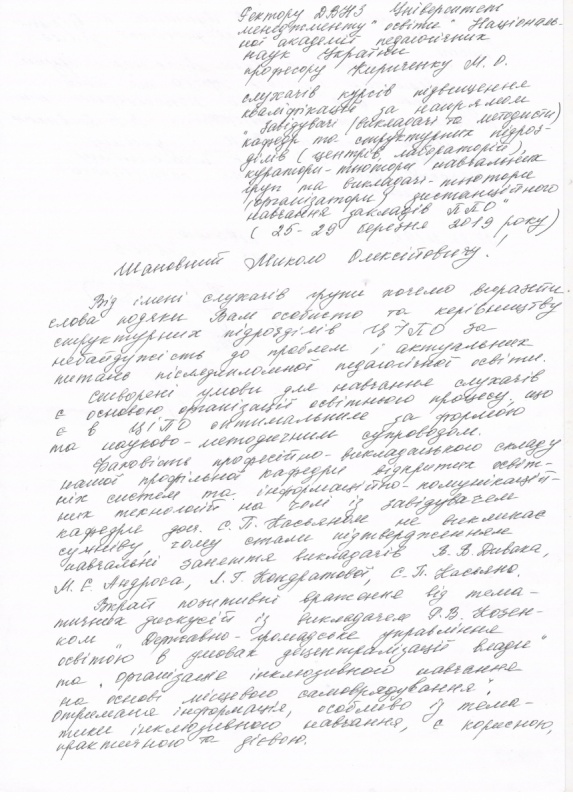 Ректору ДВНЗ "Університет
менеджменту освіти" Національ-
ної академії педагогічних
наук України
професору Кириченку М. О.
слухачів курсів підвищення
кваліфікації за напрямом
"Завідувачі (викладачі та методисти)
кафедр та структурних підроз-
ділів (центрів, лабораторій),
куратори-тьютори навчальних
груп та викладачі-тьютори
(організатори) дистанційного
навчання закладів ППО"
(25-29 березня 2019 року)
Шановний Миколо Олексійовичу!
Від імені слухачів групи хочемо виразити
слова подяки Вам особисто та керівництву
структурних підрозділів ЦІПО за
небайдужість до проблем і актуальних
питань післядипломної педагогічної освіти.
Створені умови для навчання слухачів
є основою організації освітнього процесу, що
є в ЦІПО оптимальним за формою
та науково-методичним супроводом.
Фаховість професійно-викладацького складу
нашої профільної кафедри відкритих освіт-
ніх систем та інформаційно-комунікацій-
них технологій на чолі із завідувачем
кафедри доц. С. П. Касьяном не викликає
сумніву, чому стали підтвердженням
навчальні заняття викладачів В. В. Дивака,
М. Є. Андроса, Л. Г. Кондратової, С. П. Касьяна.
Вкрай позитивні враження від тема-
тичних дискусій із викладачем Р. В. Козен-
ком "Державно-громадське управління
освітою в умовах децентралізації влади"
та "Організація інклюзивного навчання
на основі місцевого самоврядування".
Отримана інформація, особливо із тема-
тики інклюзивного навчання, є корисною,
практичною та дієвою.